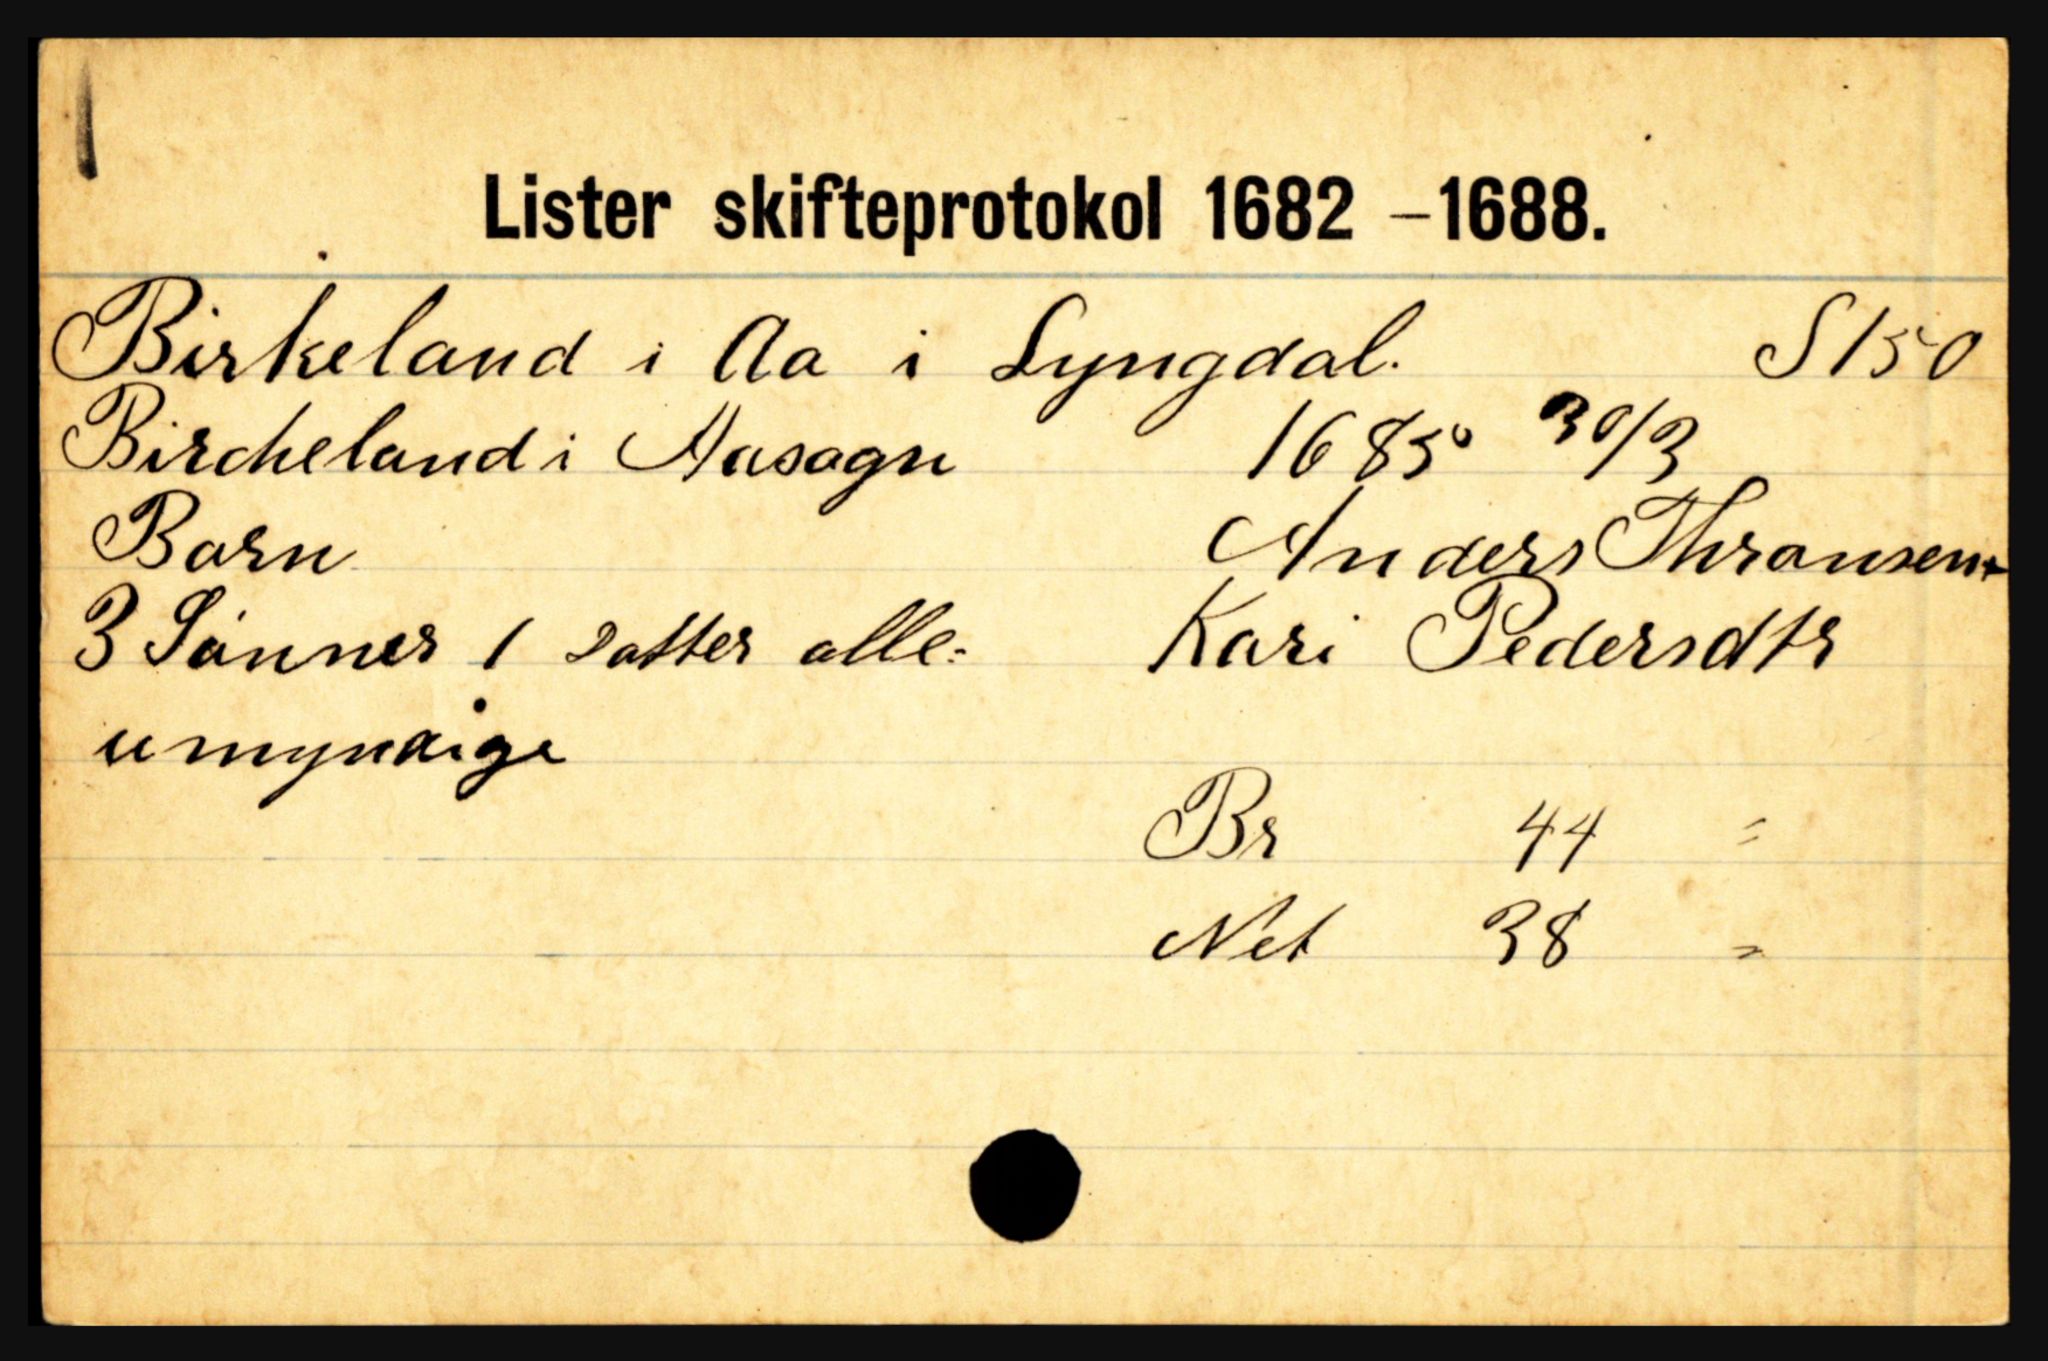 Lister skifteprotokol 1682 – 1688.
Birkeland i Aa i Lyngdal. S 150
Bircheland i Aasogn 1685 30/3
Barn Anders Thronsen +
3 Sönner 1 datter alle: Kari Pedersdtr
umyndige
Br 44 =
Net 38 =